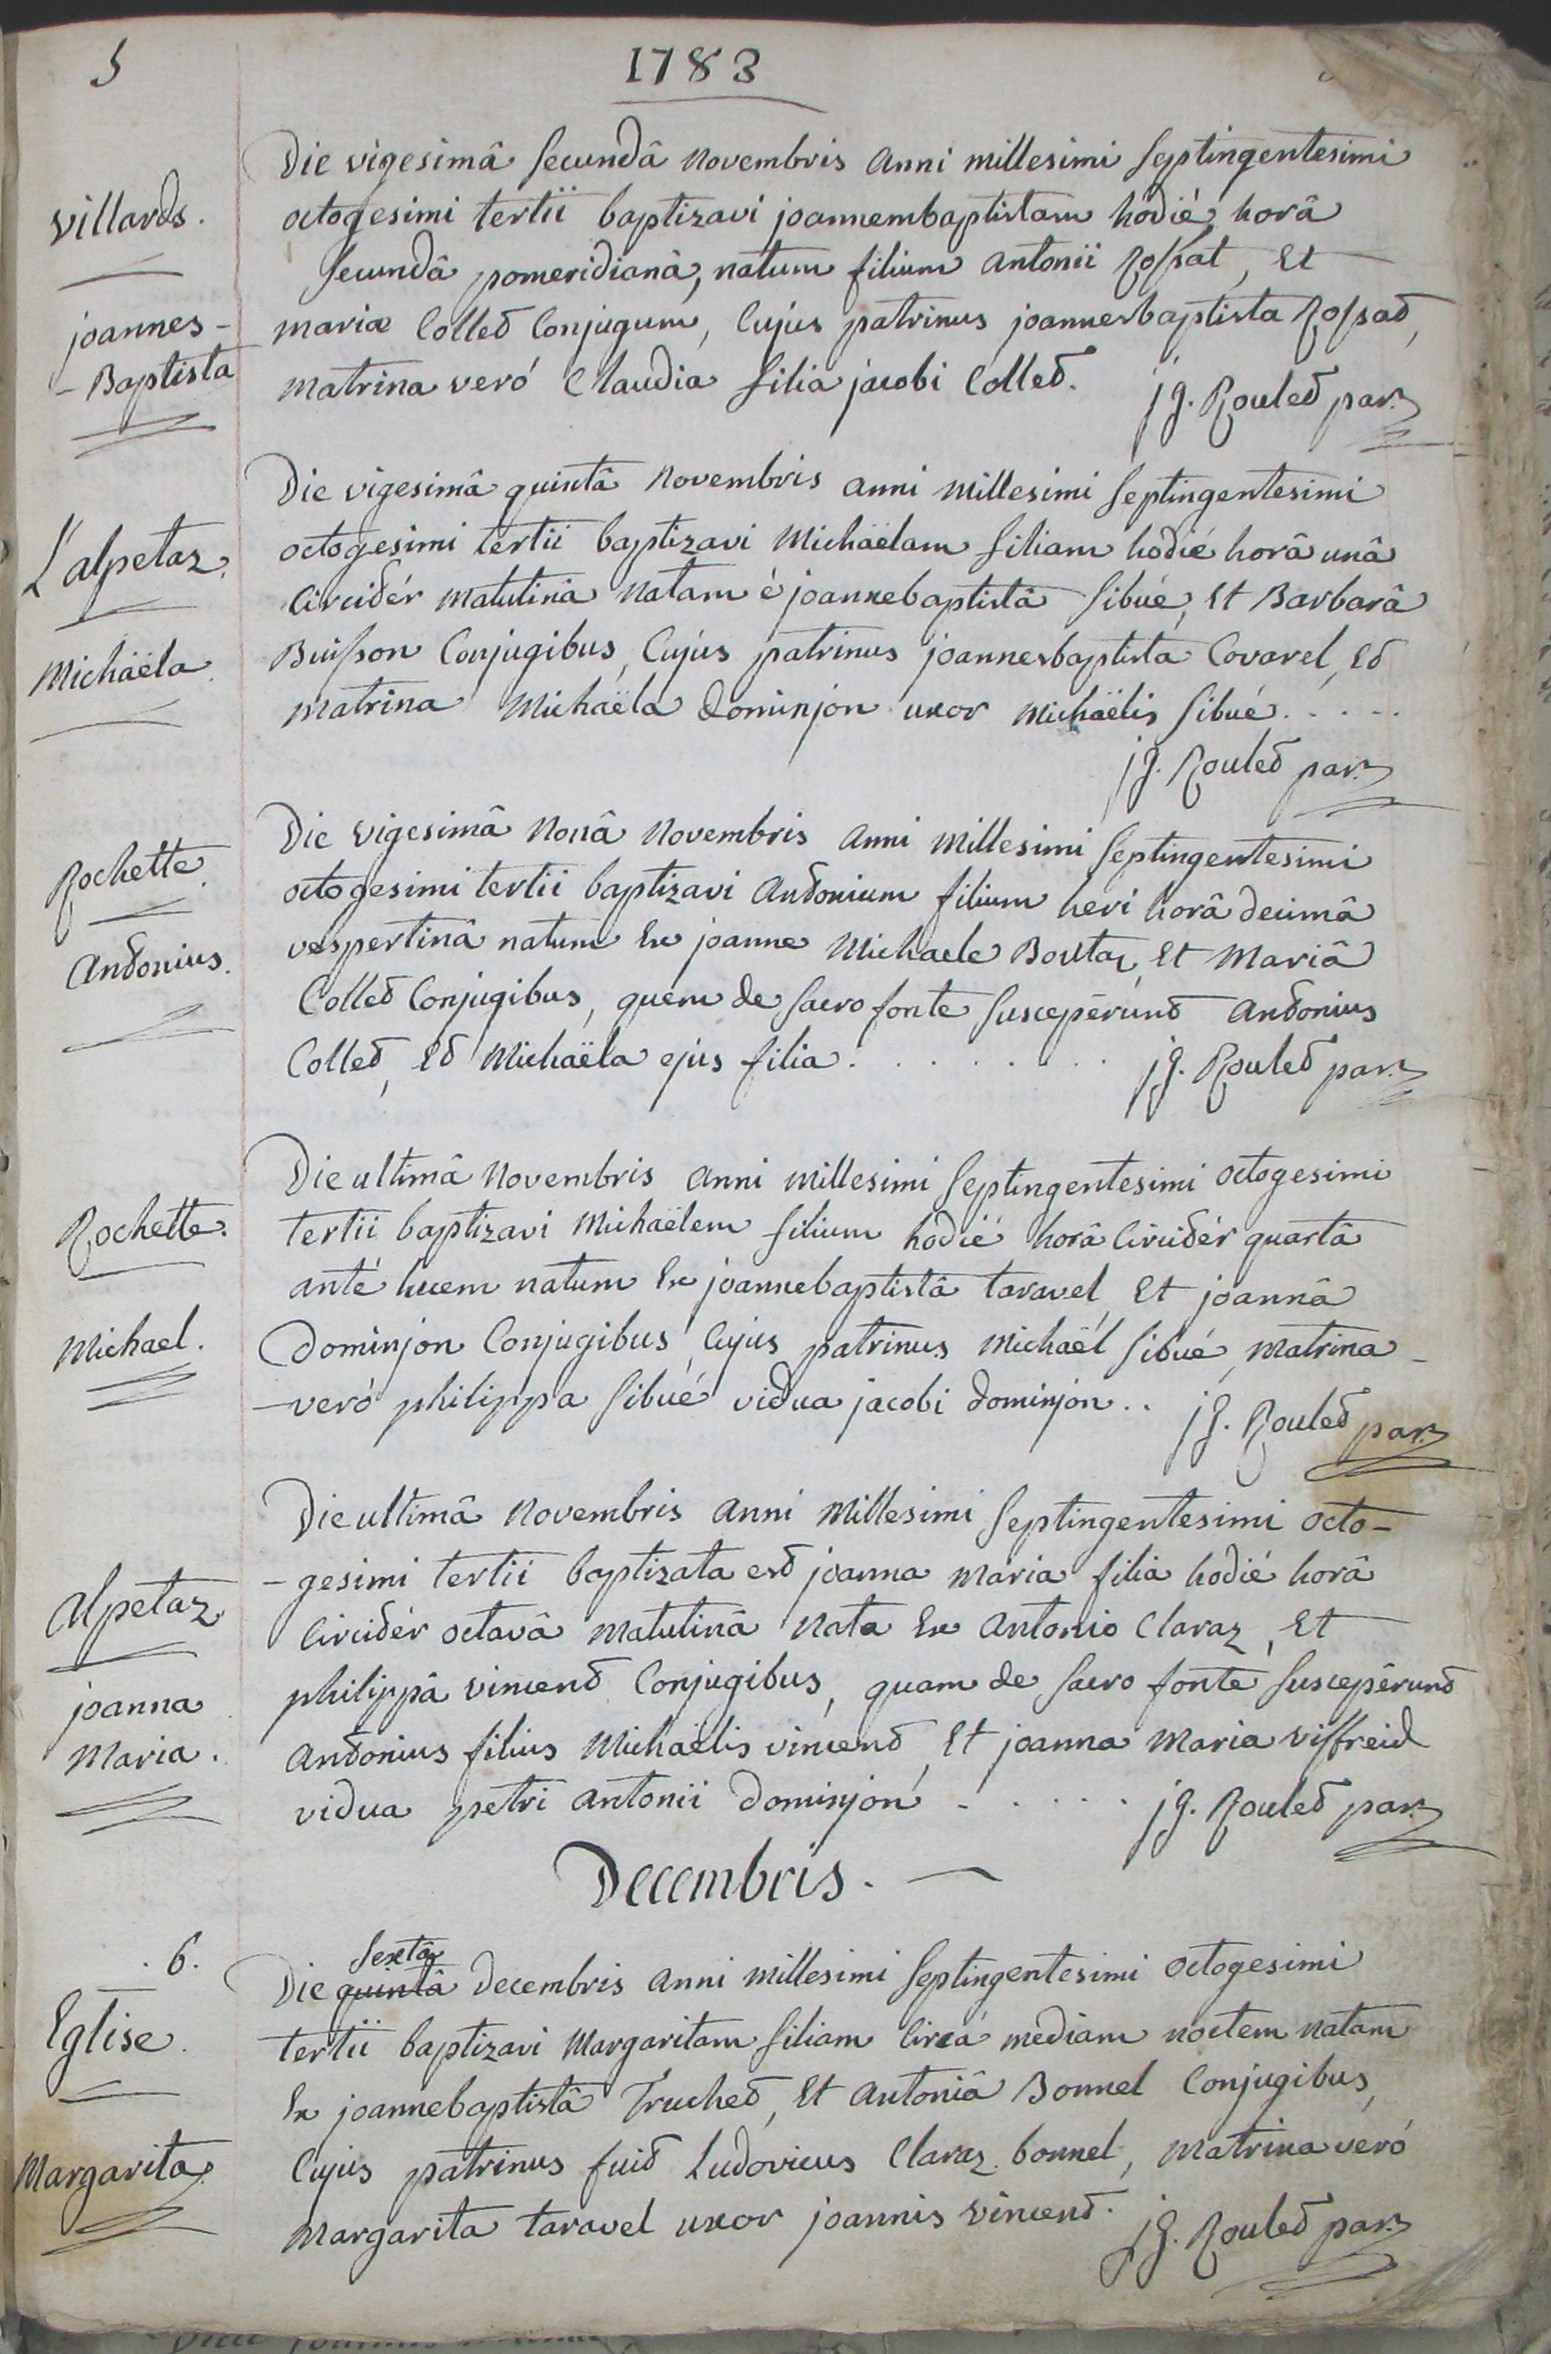 5
1783
villards.
joannes-
- Baptista
Die vigesimâ secundâ novembris anni millesimi septingentesimi
octogesimi tertii baptizavi joannembaptistam hodié horâ
secundâ pomeridianâ, natum filium antonii Rossat, Et
mariæ Collet Conjugum, Cujus patrinus joannesbaptista Rossat,
matrina veró Claudia filia jacobi Collet. jg. Roulet par.
L'alpetaz.
Michäela
Die vigesimâ quintâ novembris anni millesimi septingentesimi
octogesimi tertii baptizavi Michäelam filiam hodié horâ unâ
Circiter matutinâ natam é joannebaptistâ sibué, Et Barbarâ
Buisson Conjugibus, Cujus patrinus joannesbaptista Covarel, Et
matrina Michaëla dominjon uxor michäelis sibué. . . . .
jg. Roulet par.
Rochette
Antonius.
Die vigesimâ nonâ novembris anni millesimi septingentesimi
octogesimi tertii baptizavi Antonium filium heri horâ decimâ
vespertinâ natum Ex joanne Michaele Boutaz Et Mariâ
Collet Conjugibus, quem de sacro fonte susceperunt Antonius
Collet, Et Michaëla ejus filia. . . . . . . jg. Roulet par.
Rochette.
Michael.
Die ultimâ novembris anni millesimi septingentesimi octogesimi
tertii baptizavi Michaëlem filium hodié horâ Circitér quartâ
anté lucem natum Ex joannebaptistâ taravel Et joannâ
Dominjon Conjugibus, Cujus patrinus michaël sibué, matrina -
- veró philippa sibué vidua jacobi dominjon. . jg. Roulet par.
Alpetaz
joanna
maria.
Die ultimâ novembris anni millesimi septingentesimi octo-
- gesimi tertii baptizata est joanna maria filia hodié horâ
Circitér octavâ matutinâ nata Ex Antonio Claraz, Et
philippâ vincent Conjugibus, quam de sacro fonte susceperunt
Antonius filius Michaëlis vincent, Et joanna maria viffreid
vidua petri antonii dominjon . . . . . jg. Roulet par.
Decembris. -
. 6.
Eglise.
Margarita.
sextâ
Die quintâ decembris anni millesimi septingentesimi octogesimi
tertii baptizavi Margaritam filiam Circá mediam noctem natam
Ex joannebaptistâ Truchet, Et Antoniâ Bonnel Conjugibus,
Cujus patrinus fuit Ludovicus Claraz bonnel, matrina veró
Margarita taravel uxor joannis vincent. jg. Roulet par.